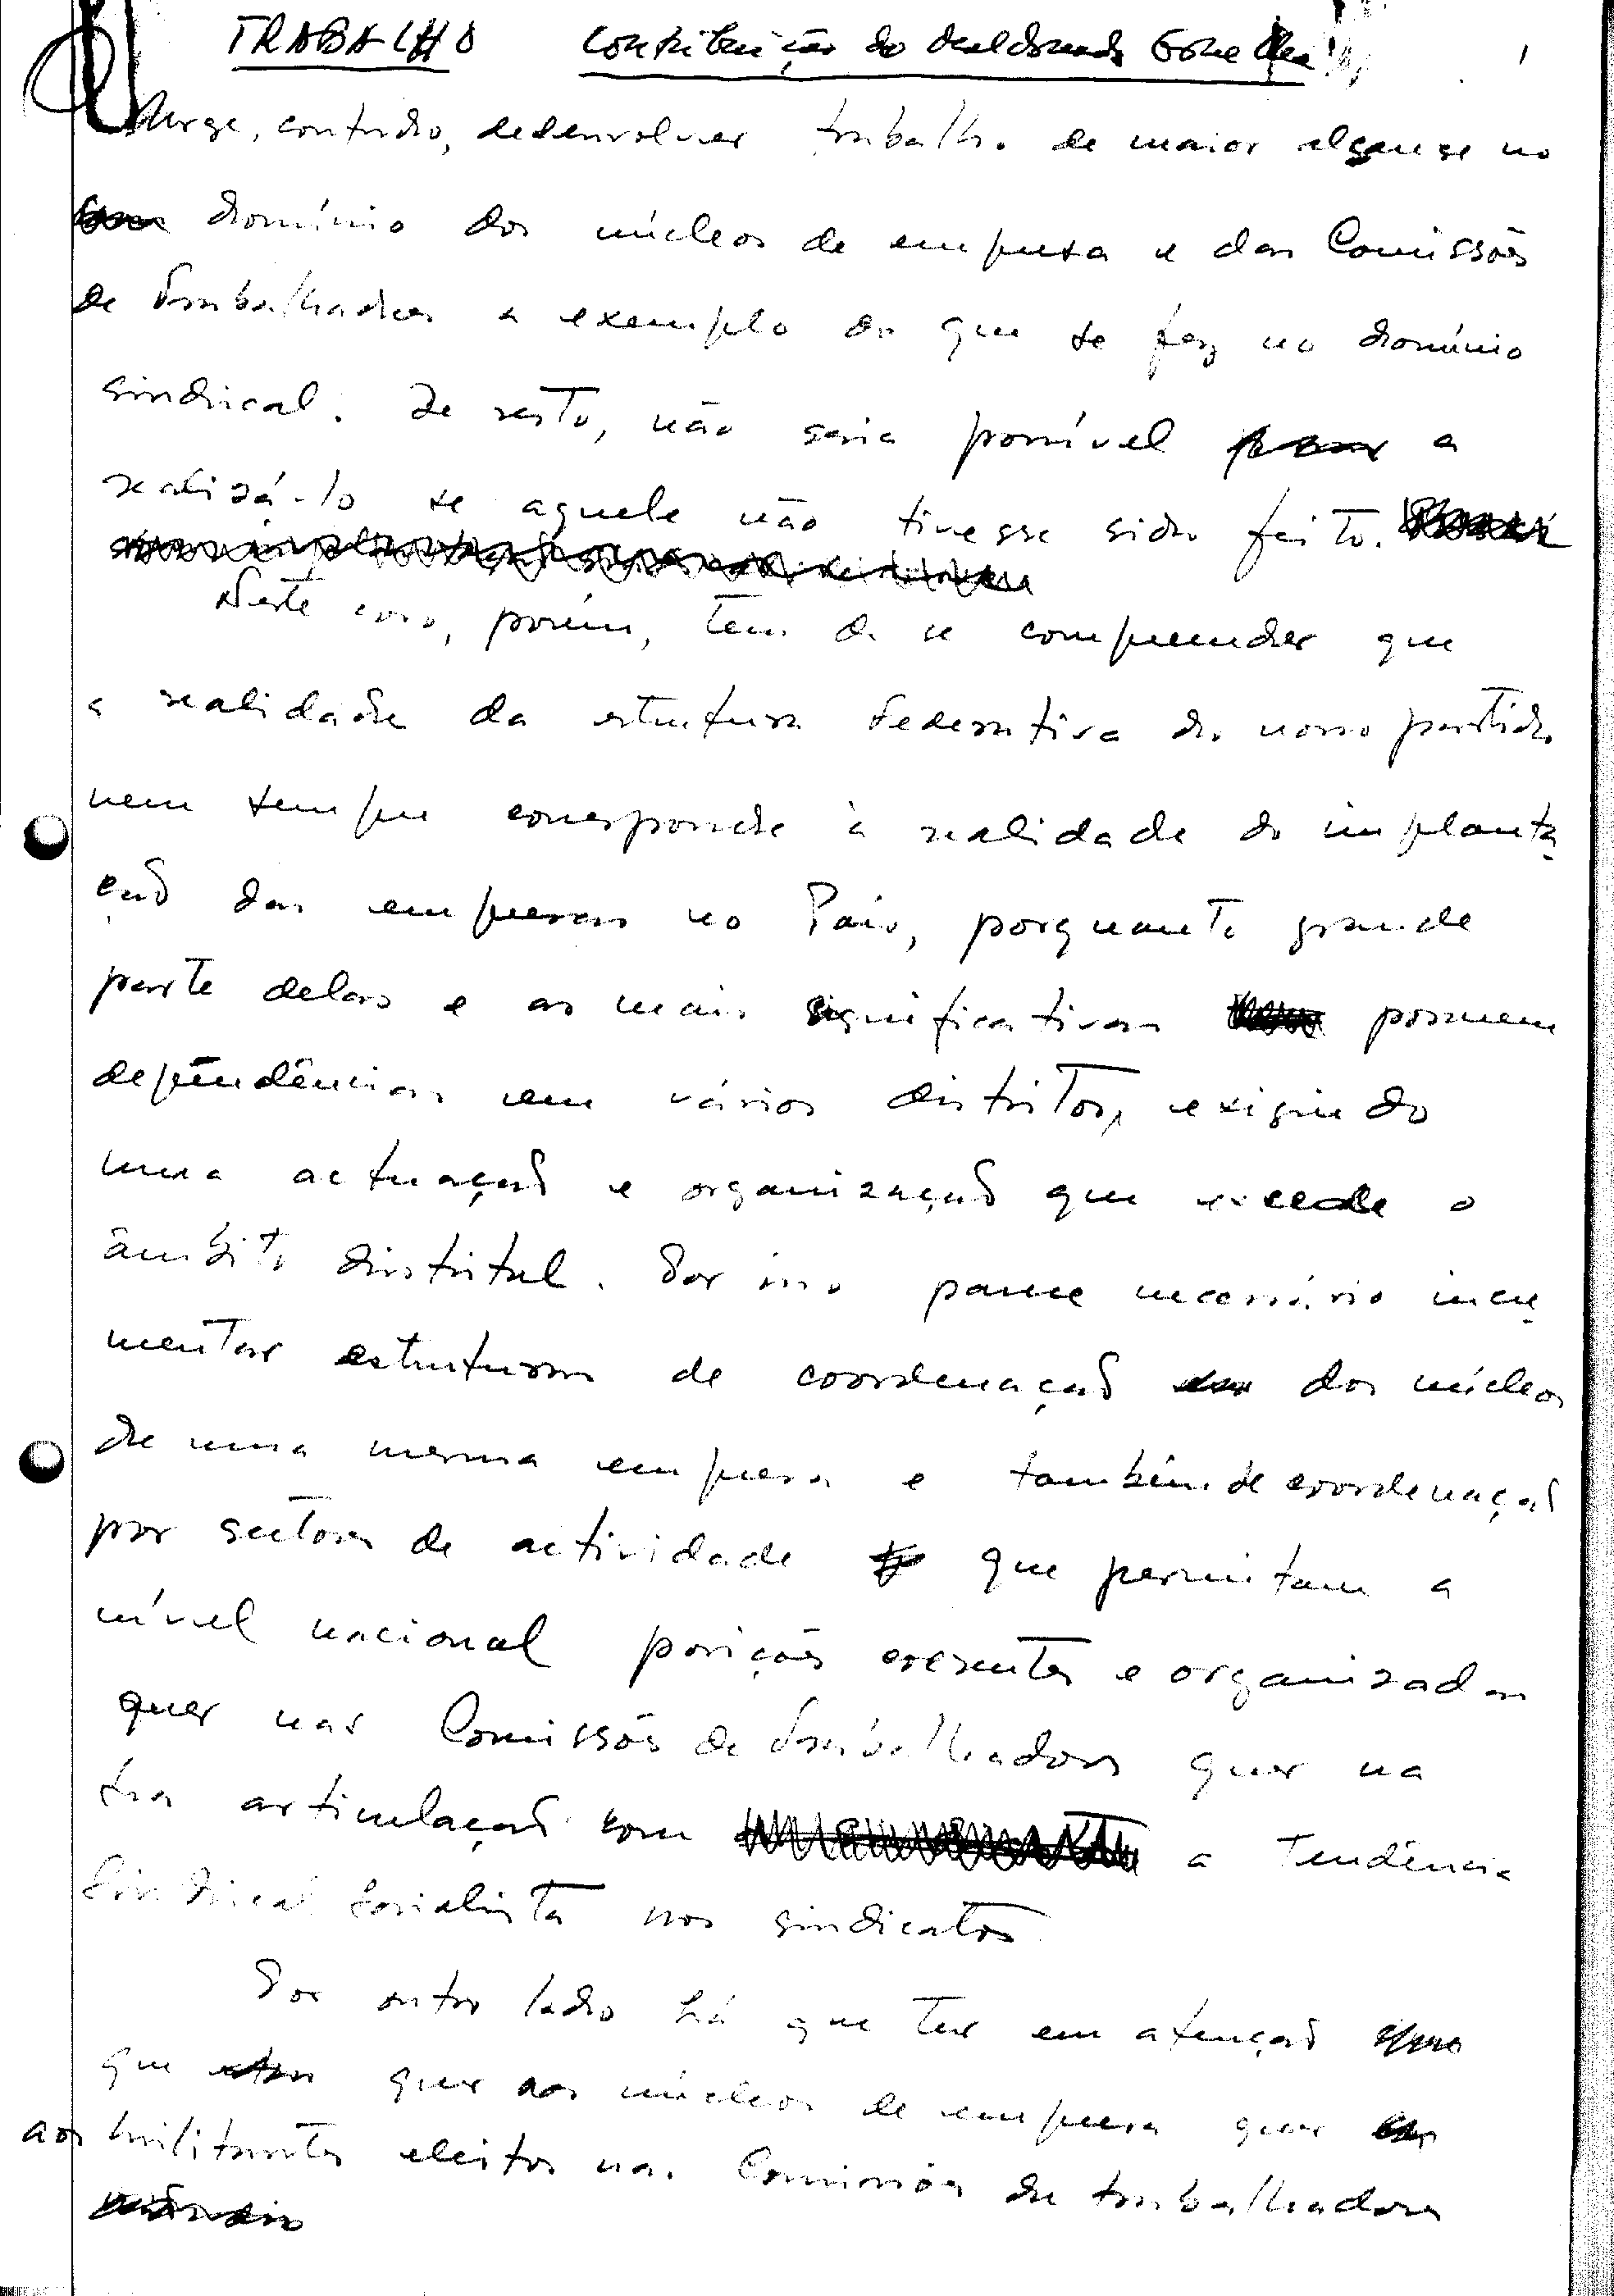 TRABALHO Contribuição do Maldonado Gonelha 1
Urge, contudo, desenvolver trabalho de maior alcance no
domínio dos núcleos de empresa e das Comissões
de Trabalhadores a exemplo do que se fez no domínio
sindical. De resto, não seria possível a
realizá-lo se aquele não tivesse sido feito.
Neste caso, porém, tem de se compreender que
a realidade da estrutura federativa do nosso partido
nem sempre corresponde à realidade da implanta
ção das empresas no País, porquanto grande
parte delas e as mais significativas possuem
dependências em vários distritos, exigindo
uma actuação e organização que excede o
âmbito distrital. Por isso parece necessário incre
mentar estruturas de coordenação dos núcleos
de uma mesma empresa e também de coordenação
por sectores de actividade que permitam a
nível nacional posições coerentes e organizadas
quer nas Comissões de Trabalhadores quer na
sua articulação com a Tendência
Sindical Socialista nos sindicatos
Por outro lado há que ter em atenção
que quer aos núcleos de empresa quer
aos militantes eleitos nas Comissões de trabalhadores